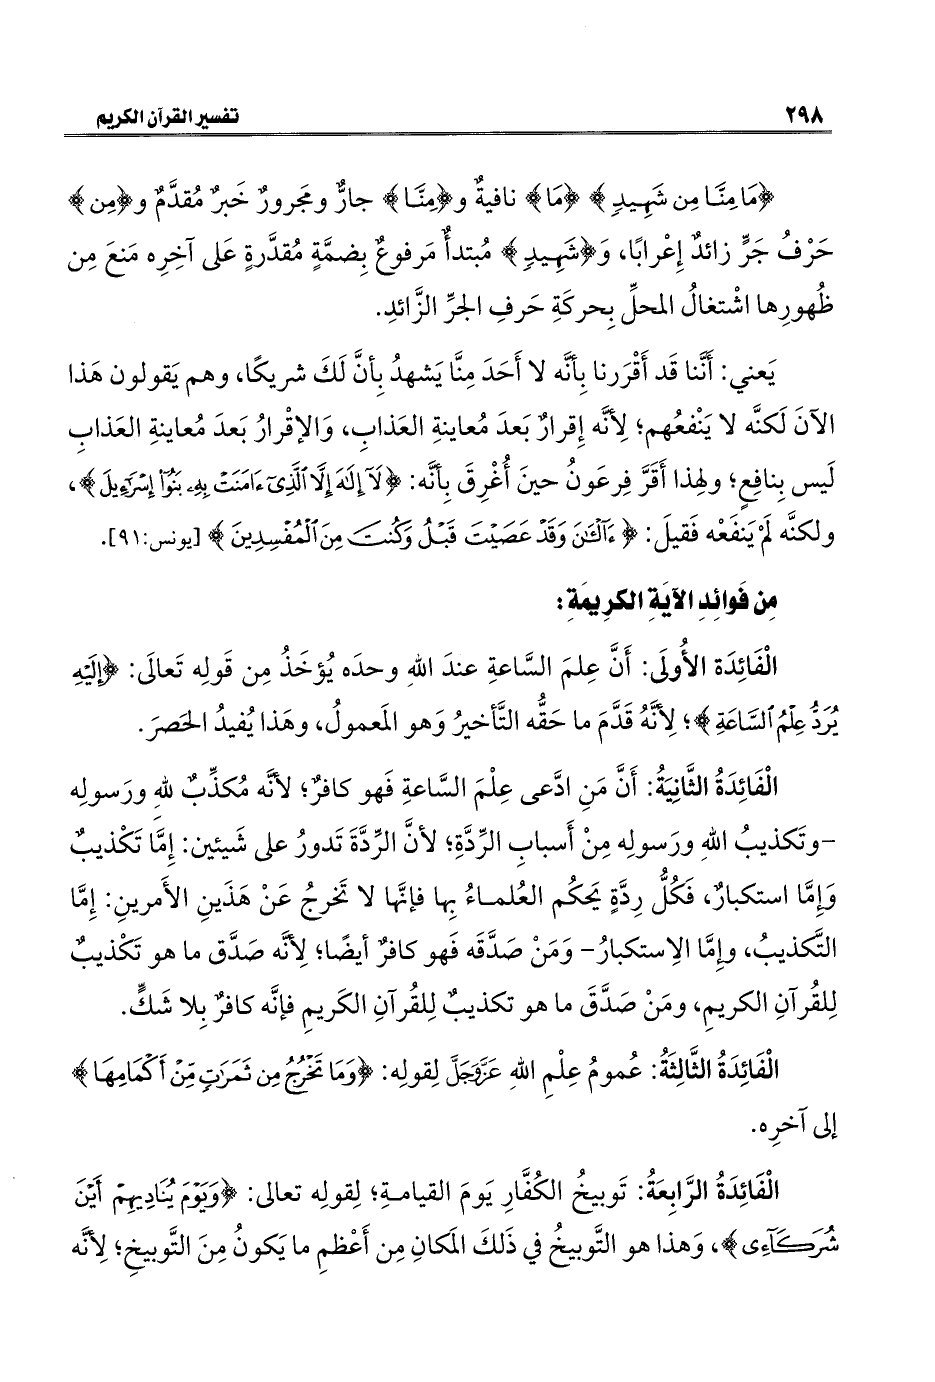 ٢٩٨ تفسير القرآن الكريم
﴿مَا مِنَّا مِن شَهِيدٍ﴾ ﴿مَا﴾ نافيةٌ و﴿مِنَّا﴾ جارٌّ ومجرورٌ خَبرٌ مُقدَّمٌ و﴿مِن﴾
حَرْفُ جَرٍّ زائدٌ إعْرابًا، وَ﴿شَهِيدٍ﴾ مُبتدأٌ مَرفوعٌ بِضمَّةٍ مُقدَّرةٍ عَلى آخِرِه مَنعَ مِن
ظُهورِها اشْتغالُ المحلِّ بِحركَةِ حَرفِ الجرِّ الزَّائدِ.
يَعني: أَنَّنا قَد أَقْرَرنا بِأنَّه لا أَحَدَ مِنَّا يَشهدُ بِأنَّ لَكَ شريكًا، وهم يَقولون هَذا
الآنَ لَكنَّه لا يَنْفعُهم؛ لِأنَّه إقرارٌ بَعدَ مُعاينةِ العذابِ، وَالإقْرارُ بَعدَ مُعاينةِ العذابِ
لَيس بِنافعٍ؛ ولهذا أقرَّ فِرعَونُ حينَ أُغْرِقَ بِأنَّه: ﴿لَآ إِلَٰهَ إِلَّا ٱلَّذِىٓ ءَامَنَتۡ بِهِۦ بَنُوٓاْ إِسۡرَٰٓءِيلَ﴾،
ولكنَّه لَمْ يَنفَعْه فَقيلَ: ﴿ءَآلۡـَٰٔنَ وَقَدۡ عَصَيۡتَ قَبۡلُ وَكُنتَ مِنَ ٱلۡمُفۡسِدِينَ﴾ [يونس:٩١].
مِن فَوائدِ الآيَةِ الكريمَةِ:
الْفَائِدَة الأُولَى: أنَّ عِلمَ السَّاعةِ عندَ اللهِ وحدَه يُؤخَذُ مِن قَولِه تَعالَى: ﴿إِلَيۡهِ
يُرَدُّ عِلۡمُ ٱلسَّاعَةِ﴾؛ لِأنَّهُ قَدَّمَ ما حَقُّه التَّأخيرُ وَهو المَعمولُ، وهَذا يُفيدُ الحَصرَ.
الْفَائِدَةُ الثَّانِيَةُ: أنَّ مَنِ ادَّعى عِلْمَ السَّاعةِ فَهو كافرٌ؛ لأنَّه مُكذِّبٌ للهِ ورَسولِه
-وتَكذيبُ اللهِ ورَسولِه مِنْ أَسبابِ الرِّدَّةِ؛ لأنَّ الرِّدَّةَ تَدورُ على شَيئين: إمَّا تَكْذيبٌ
وَإمَّا استكبارٌ، فَكُلُّ رِدَّةٍ يَحكُم العُلماءُ بِها فإنَّها لا تَخرجُ عَنْ هَذَينِ الأَمرينِ: إمَّا
التَّكذيبُ، وإمَّا الِاستكبارُ- وَمَنْ صَدَّقَه فَهو كافرٌ أيضًا؛ لِأنَّه صَدَّق ما هو تَكْذيبٌ
لِلقُرآنِ الكريمِ، ومَنْ صَدَّقَ ما هو تكذيبٌ لِلقُرآنِ الكَريمِ فإنَّه كافرٌ بِلا شَكٍّ.
الْفَائِدَةُ الثَّالِثَةُ: عُمومُ عِلْمِ اللهِ عَزَّوَجَلَّ لِقولِه: ﴿وَمَا تَخۡرُجُ مِن ثَمَرَٰتٍ مِّنۡ أَكۡمَامِهَا﴾
إلى آخرِه.
الْفَائِدَةُ الرَّابِعَةُ: تَوبيخُ الكُفَّارِ يَومَ القيامةِ؛ لِقولِه تعالى: ﴿وَيَوۡمَ يُنَادِيهِمۡ أَيۡنَ
شُرَكَآءِى﴾، وَهذا هو التَّوبيخُ في ذَلكَ المكَانِ مِن أَعْظمِ ما يَكونُ مِنَ التَّوبيخِ؛ لِأنَّه